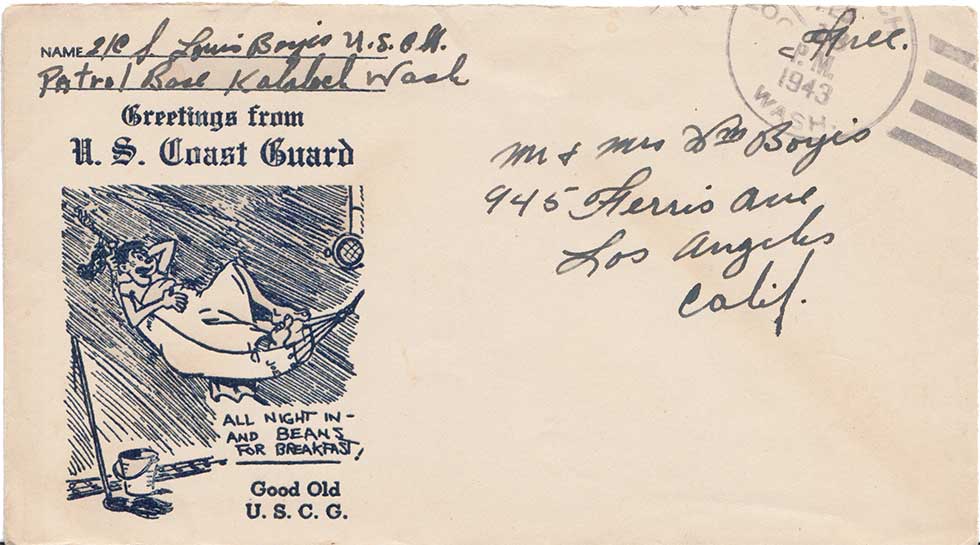 NAME S/C J Louis Boyis U.S.C.G.
Patrol Base Kalaloch Wash
Greetings from
U. S. Coast Guard
ALL NIGHT IN -
AND BEANS
FOR BREAKFAST!
Good Old
U. S. C. G.
CH
P.M.
1943
WASH.
Free.
Mr & Mrs Wm Boyis
945 Ferris Ave
Los Angeles
Calif.